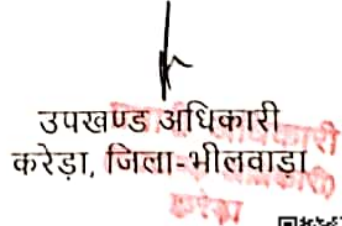 उपखण्ड अधिकारी
करेड़ा, जिला-भीलवाड़ा
करेड़ा